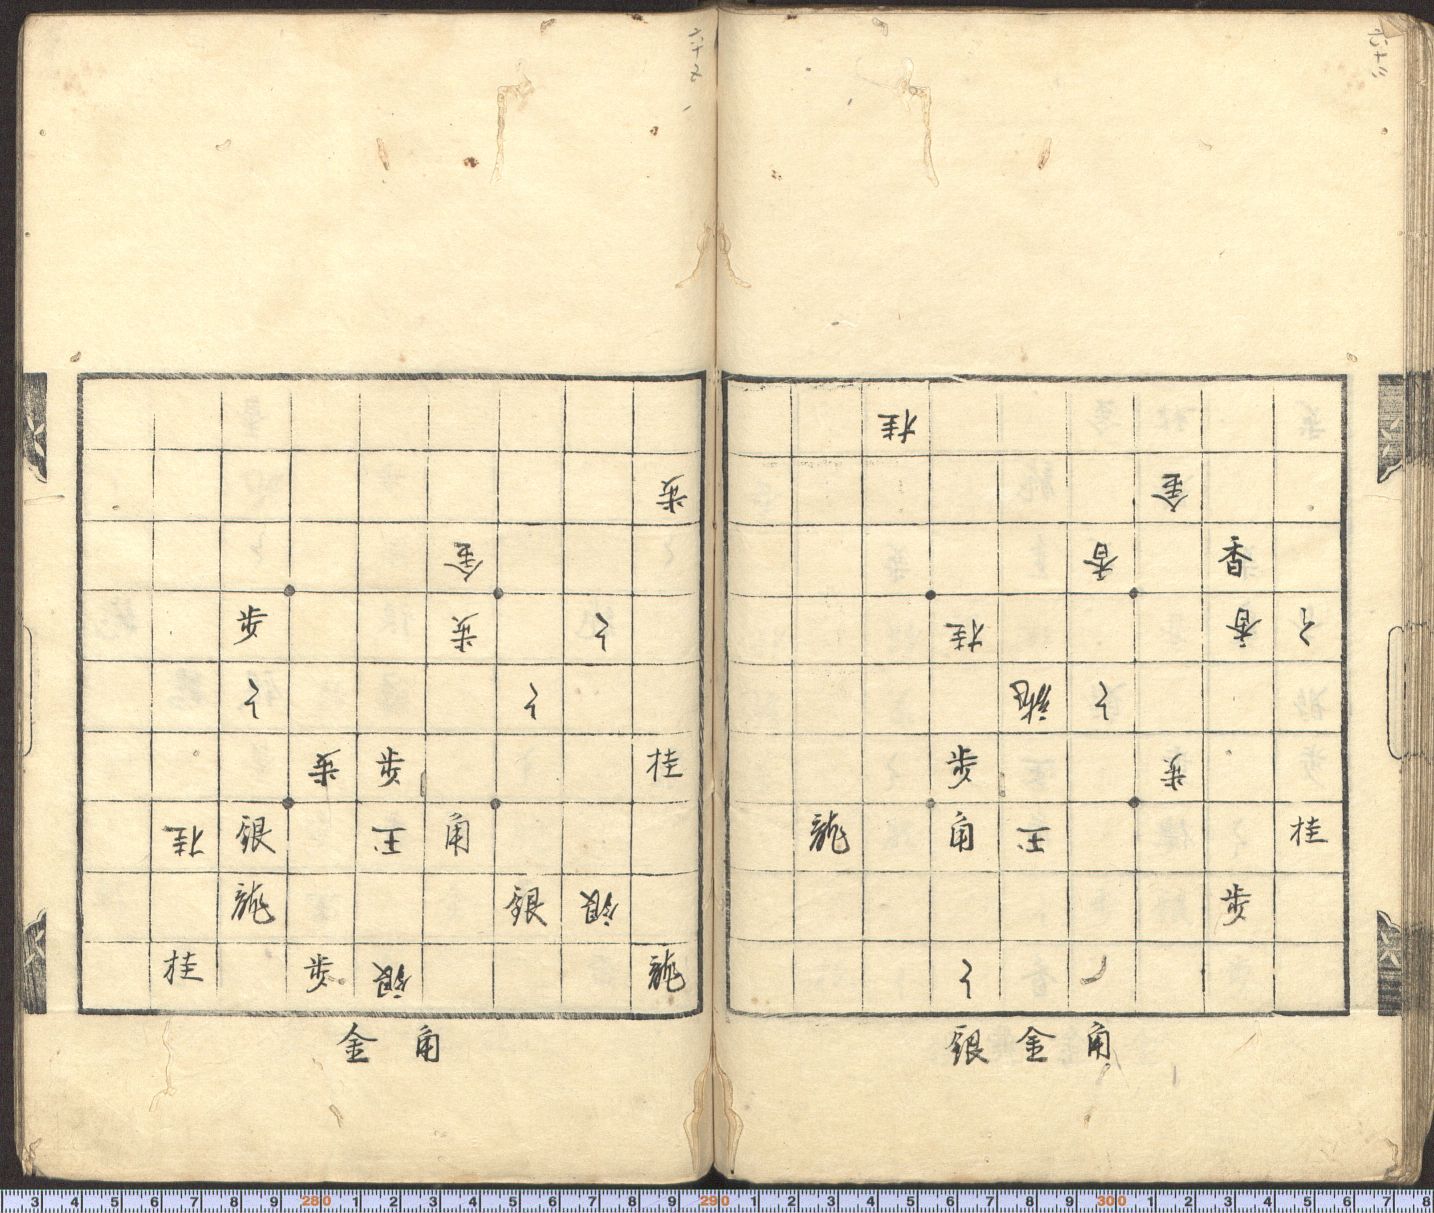 桂
金
香 香
桂 香 々
龍 々
歩 歩
龍 角 玉 桂
歩
々
銀 金 角
歩
金
歩 歩 々
々 々
歩 歩 桂
桂 銀 玉 角
龍 銀 銀
桂 歩 銀 龍
金 角
3 4 5 6 7 8 9 280 1 2 3 4 5 6 7 8 9 290 1 2 3 4 5 6 7 8 9 300 1 2 3 4 5 6 7 8